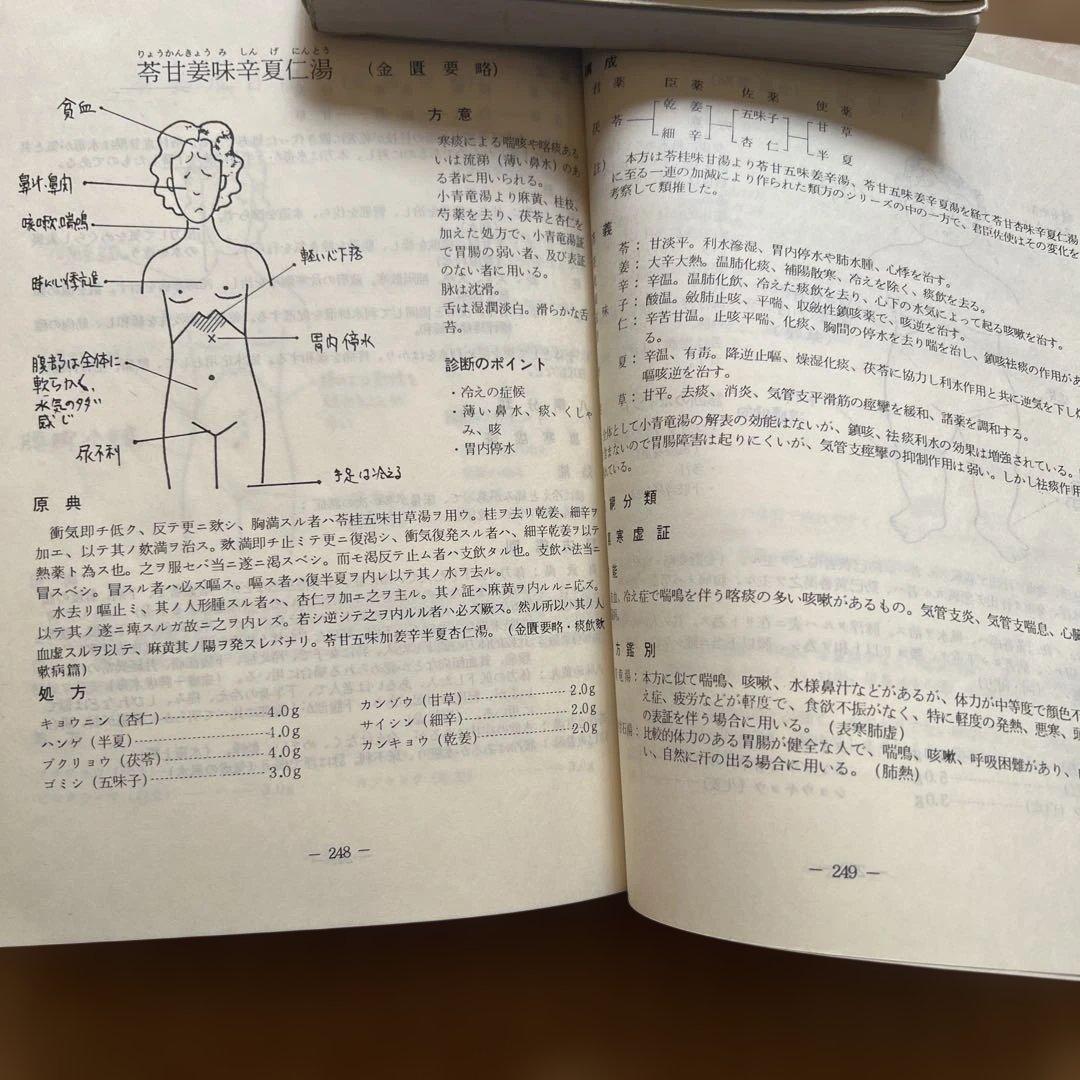 りょうかんきょう み しん げ にんとう
苓甘姜味辛夏仁湯 (金匱要略)
貧血
鼻汁・鼻閉
咳嗽・喘鳴
時に心悸亢進
腹部は全体に
軟らかく、
水気の多い
感じ
尿不利
軽い心下痞
胃内停水
手足は冷える
方意
寒痰による喘咳や喀痰ある
いは流涕(薄い鼻水)のあ
る者に用いられる。
小青竜湯より麻黄、桂枝、
芍薬を去り、茯苓と杏仁を
加えた処方で、小青竜湯証
で胃腸の弱い者、及び表証
のない者に用いる。
脈は沈滑。
舌は湿潤淡白。滑らかな舌
苔。
診断のポイント
・冷えの症候
・薄い鼻水、痰、くしゃ
み、咳
・胃内停水
原典
衝気即チ低ク、反テ更ニ欬シ、胸満スル者ハ苓桂五味甘草湯ヲ用ウ。桂ヲ去リ乾姜、細辛ヲ
加エ、以テ其ノ欬満ヲ治ス。欬満即チ止ミテ更ニ復渇シ、衝気復発スル者ハ、細辛乾姜ヲ以テ
熱薬ト為ス也。之ヲ服セバ当ニ遂ニ渇スベシ。而モ渇反テ止ム者ハ支飲タル也。支飲ハ法当ニ
冒スベシ。冒スル者ハ必ズ嘔ス。嘔ス者ハ復半夏ヲ内レ以テ其ノ水ヲ去ル。
水去リ嘔止ミ、其ノ人形腫スル者ハ、杏仁ヲ加エ之ヲ主ル。其ノ証ハ麻黄ヲ内ルルニ応ズ。
以テ其ノ遂ニ痺スルガ故ニ之ヲ内レズ。若シ逆シテ之ヲ内ルル者ハ必ズ厥ス。然ル所以ハ其ノ人
血虚スルヲ以テ、麻黄其ノ陽ヲ発スレバナリ。苓甘五味加姜辛半夏杏仁湯。(金匱要略・痰飲欬
嗽病篇)
処方
キョウニン(杏仁)4.0g
ハンゲ(半夏)4.0g
ブクリョウ(茯苓)4.0g
ゴミシ(五味子)3.0g
カンゾウ(甘草)2.0g
サイシン(細辛)2.0g
カンキョウ(乾姜)2.0g
— 248 —
構成
君薬 臣薬 佐薬 使薬
茯苓 乾姜 五味子 甘草
細辛 杏仁 半夏
本方は苓桂味甘湯より苓甘五味姜辛湯、苓甘五味姜辛夏湯を経て苓甘杏味辛夏仁湯
に至る一連の加減により作られた類方のシリーズの中の一方で、君臣佐使はその変化を
考察して類推した。
義
苓:甘淡平。利水滲湿、胃内停水や肺水腫、心悸を治す。
姜:大辛大熱。温肺化痰、補陽散寒、冷えを除く、痰飲を去る。
辛:辛温。温肺化飲、冷えた痰飲を去り、心下の水気によって起る咳嗽を治す。
味子:酸温。斂肺止咳、平喘、収斂性鎮咳薬で、咳逆を治す。
仁:辛苦甘温。止咳平喘、化痰、胸間の停水を去り喘を治し、鎮咳祛痰の作用があ
る。
夏:辛温、有毒。降逆止嘔、燥湿化痰、茯苓に協力し利水作用と共に逆気を下し
嘔咳逆を治す。
草:甘平。去痰、消炎、気管支平滑筋の痙攣を緩和、諸薬を調和する。
全体として小青竜湯の解表の効能はないが、鎮咳、祛痰利水の効果は増強されている。
含まないので胃腸障害は起りにくいが、気管支痙攣の抑制作用は弱い。しかし祛痰作用
れている。
綱分類
裏寒虚証
能
血、冷え症で喘鳴を伴う喀痰の多い咳嗽があるもの。気管支炎、気管支喘息、心臓
方鑑別
竜湯:本方に似て喘鳴、咳嗽、水様鼻汁などがあるが、体力が中等度で顔色不
え症、疲労などが軽度で、食欲不振がなく、特に軽度の発熱、悪寒、頭
の表証を伴う場合に用いる。(表寒肺虚)
甘石湯:比較的体力のある胃腸が健全な人で、喘鳴、咳嗽、呼吸困難があり、
い、自然に汗の出る場合に用いる。(肺熱)
— 249 —